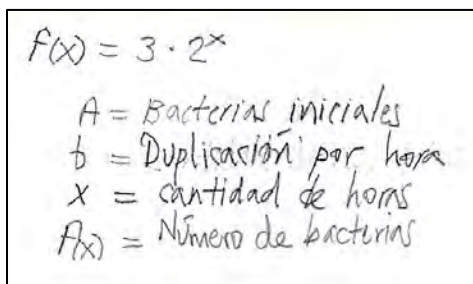 f(x) = 3 · 2^x
A = Bacterias iniciales
b = Duplicación por hora
x = cantidad de horas
f(x) = Número de bacterias